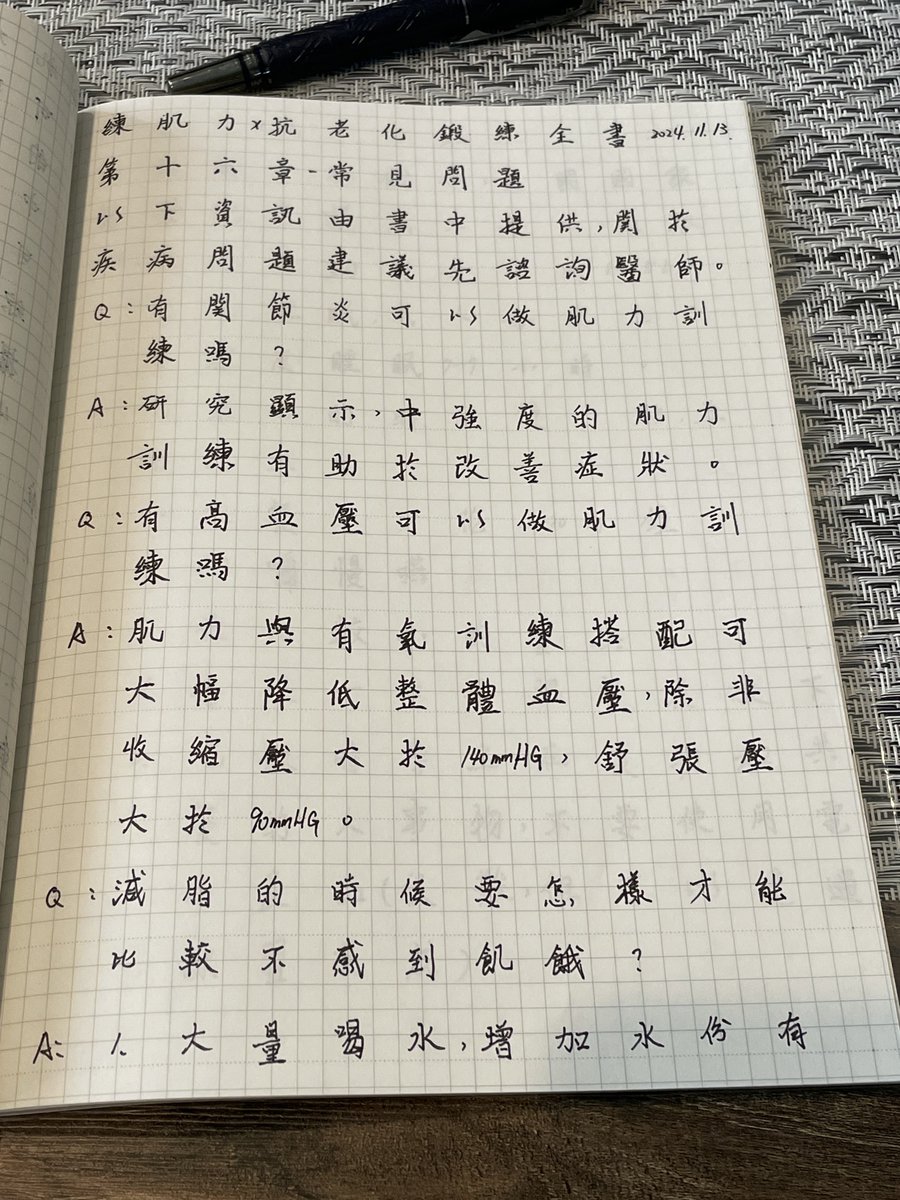 練肌力×抗老化鍛練全書 2024.11.13.
第十六章-常見問題
以下資訊由書中提供,關於
疾病問題建議先諮詢醫師。
Q:有關節炎可以做肌力訓
練嗎?
A:研究顯示,中強度的肌力
訓練有助於改善症狀。
Q:有高血壓可以做肌力訓
練嗎?
A:肌力與有氧訓練搭配可
大幅降低整體血壓,除非
收縮壓大於140mmHG,舒張壓
大於90mmHG。
Q:減脂的時候要怎樣才能
比較不感到飢餓?
A:1.大量喝水,增加水份有